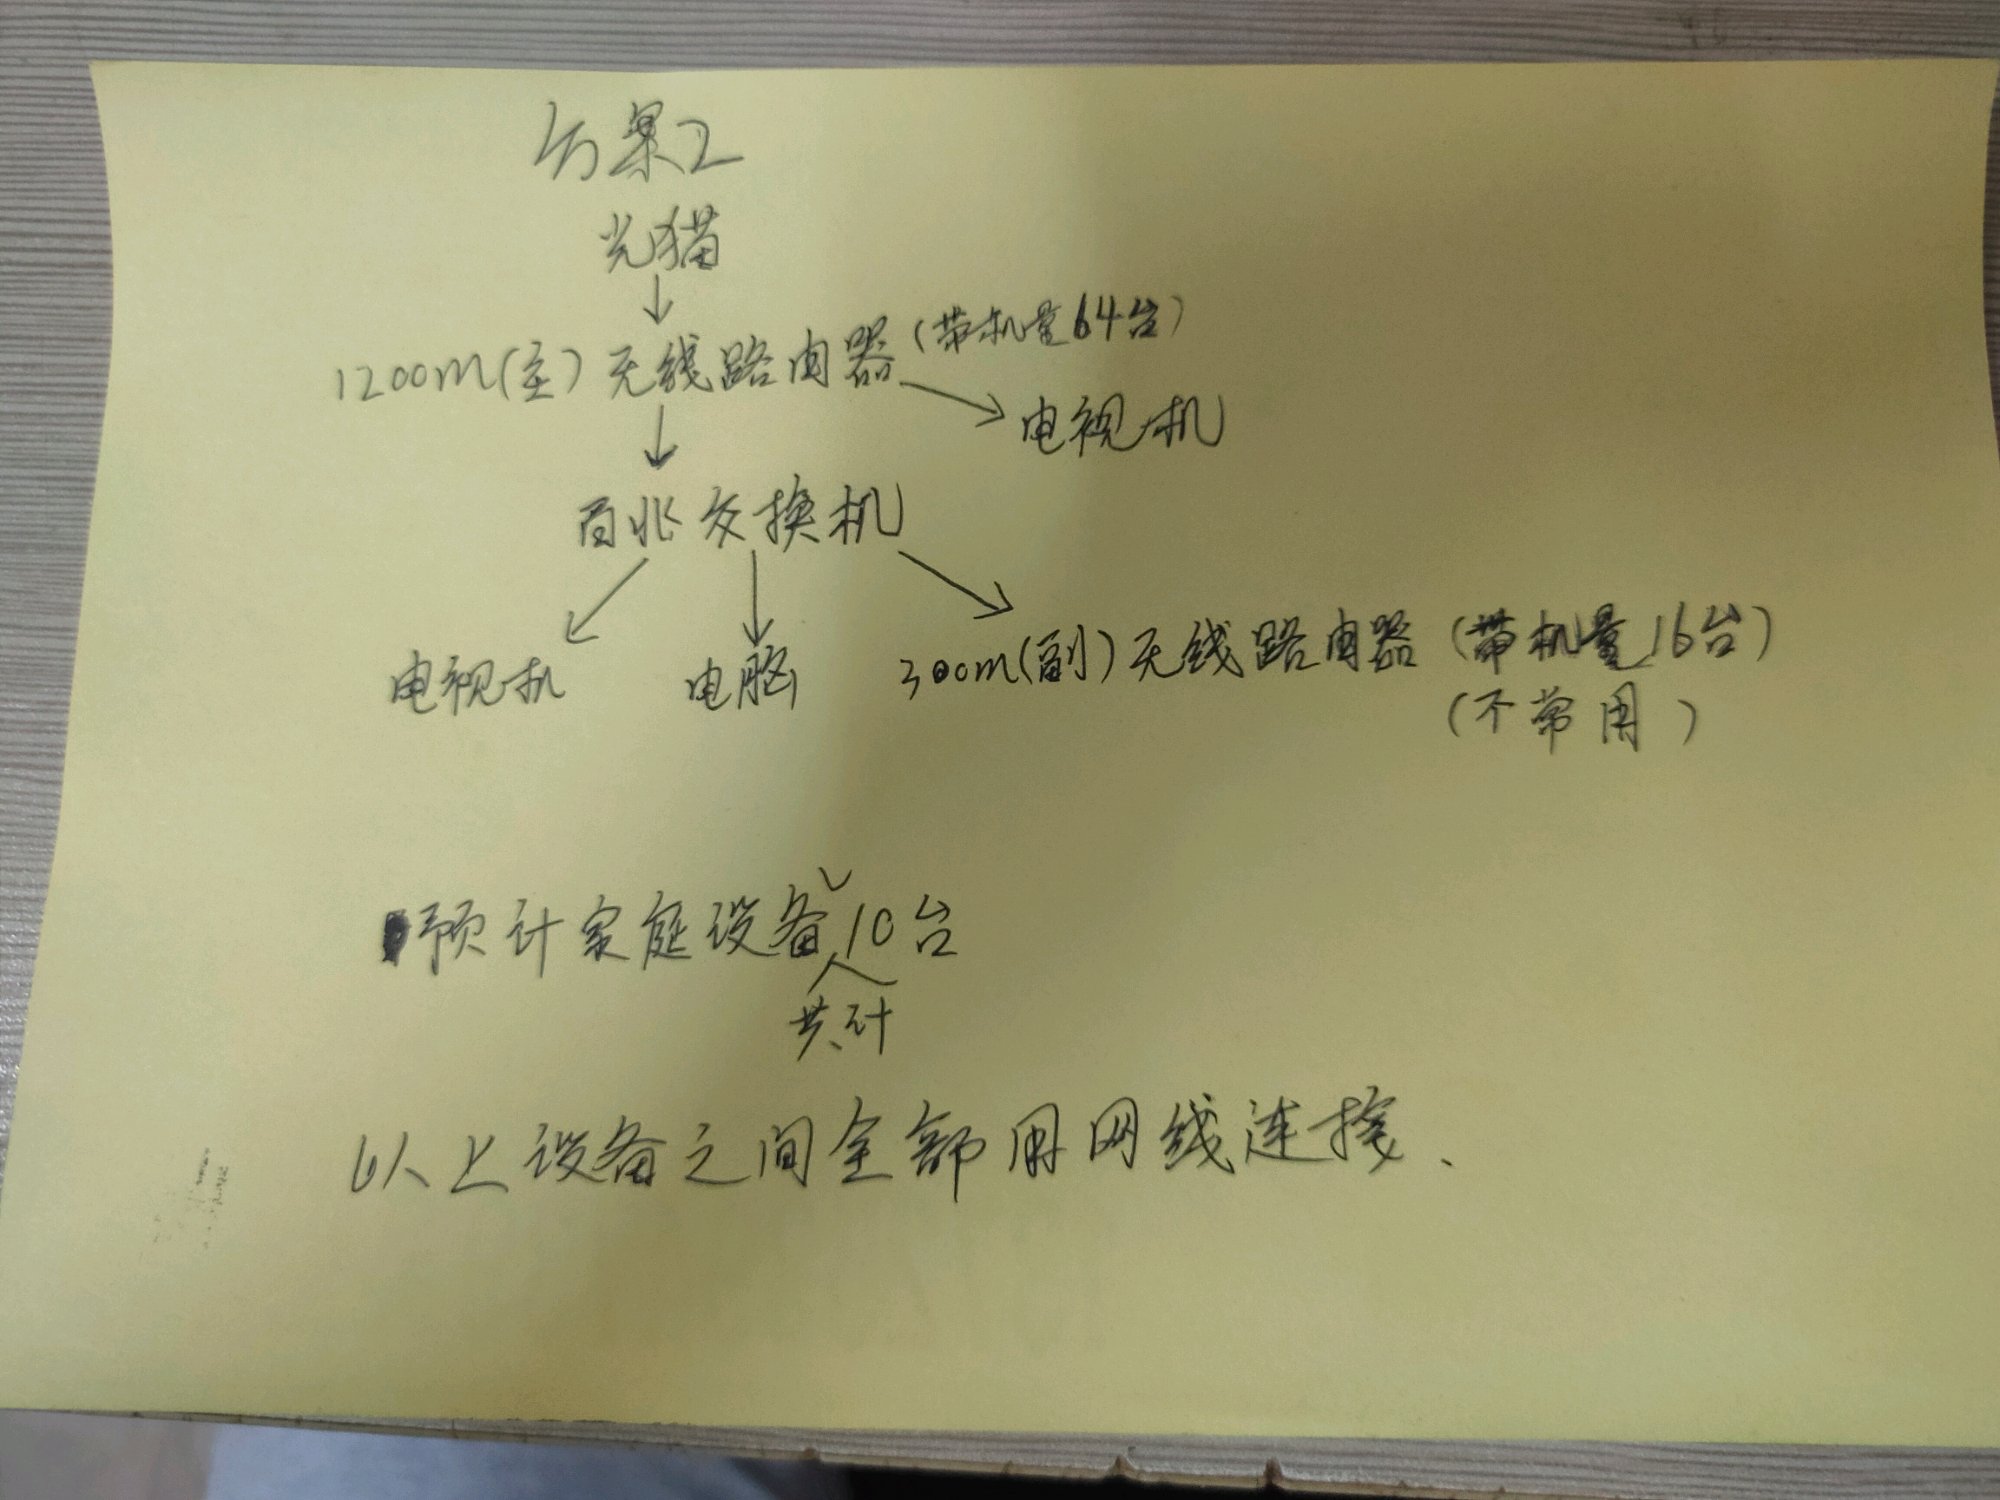 方案2
光猫
1200m(主)无线路由器(带机量64台)
电视机
百兆交换机
电视机 电脑 300m(副)无线路由器(带机量16台)
(不常用)
预计家庭设备共计10台
以上设备之间全部用网线连接.